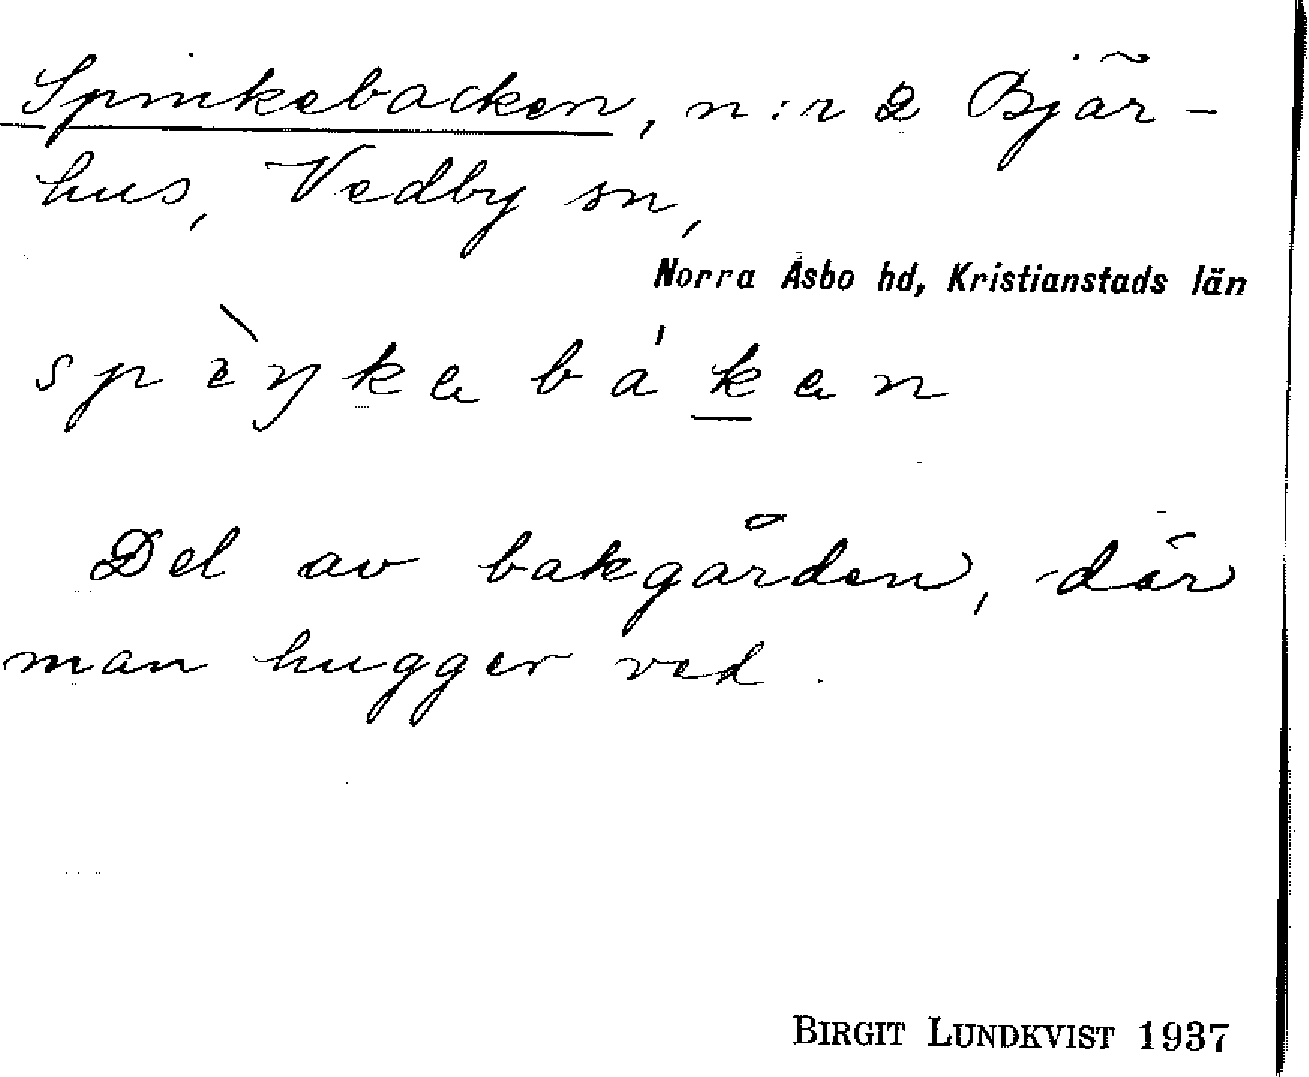 Spinkebacken, n:r 2 Bjär-
hus, Vedby sn,
Norra Åsbo hd, Kristianstads län
spèŋkabákan
Del av bakgården, där
man hugger ved.
BIRGIT LUNDKVIST 1937